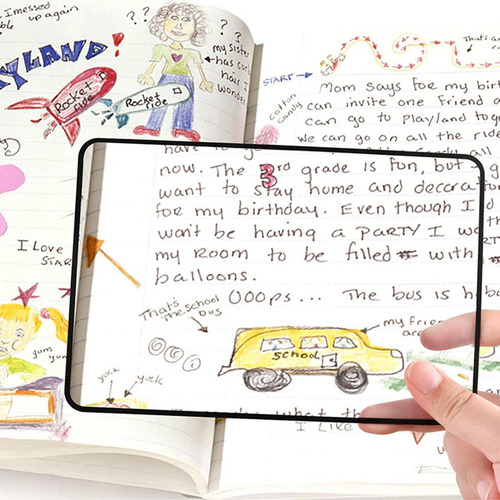 I messed
up again
? ? ? ?
my sister
has curly
hair =
wonder
YLAND!
Rocket
ride
Rocket
ride
I LOVE
STAR
yum
yum
cotton
candy
START
That's
Mom says for my birt
can invite one friend o
can go to playland tog
we can go on all the rid
have to go
now. The 3rd grade is fun, but
want to stay home and decora
for my birthday. Even though I
won't be having a PARTY I w
my room to be filled with
balloons.
OOOps... The bus is h
That's
the school
bus
my frie
SCHOOL
yuck
yuck
what th
I like